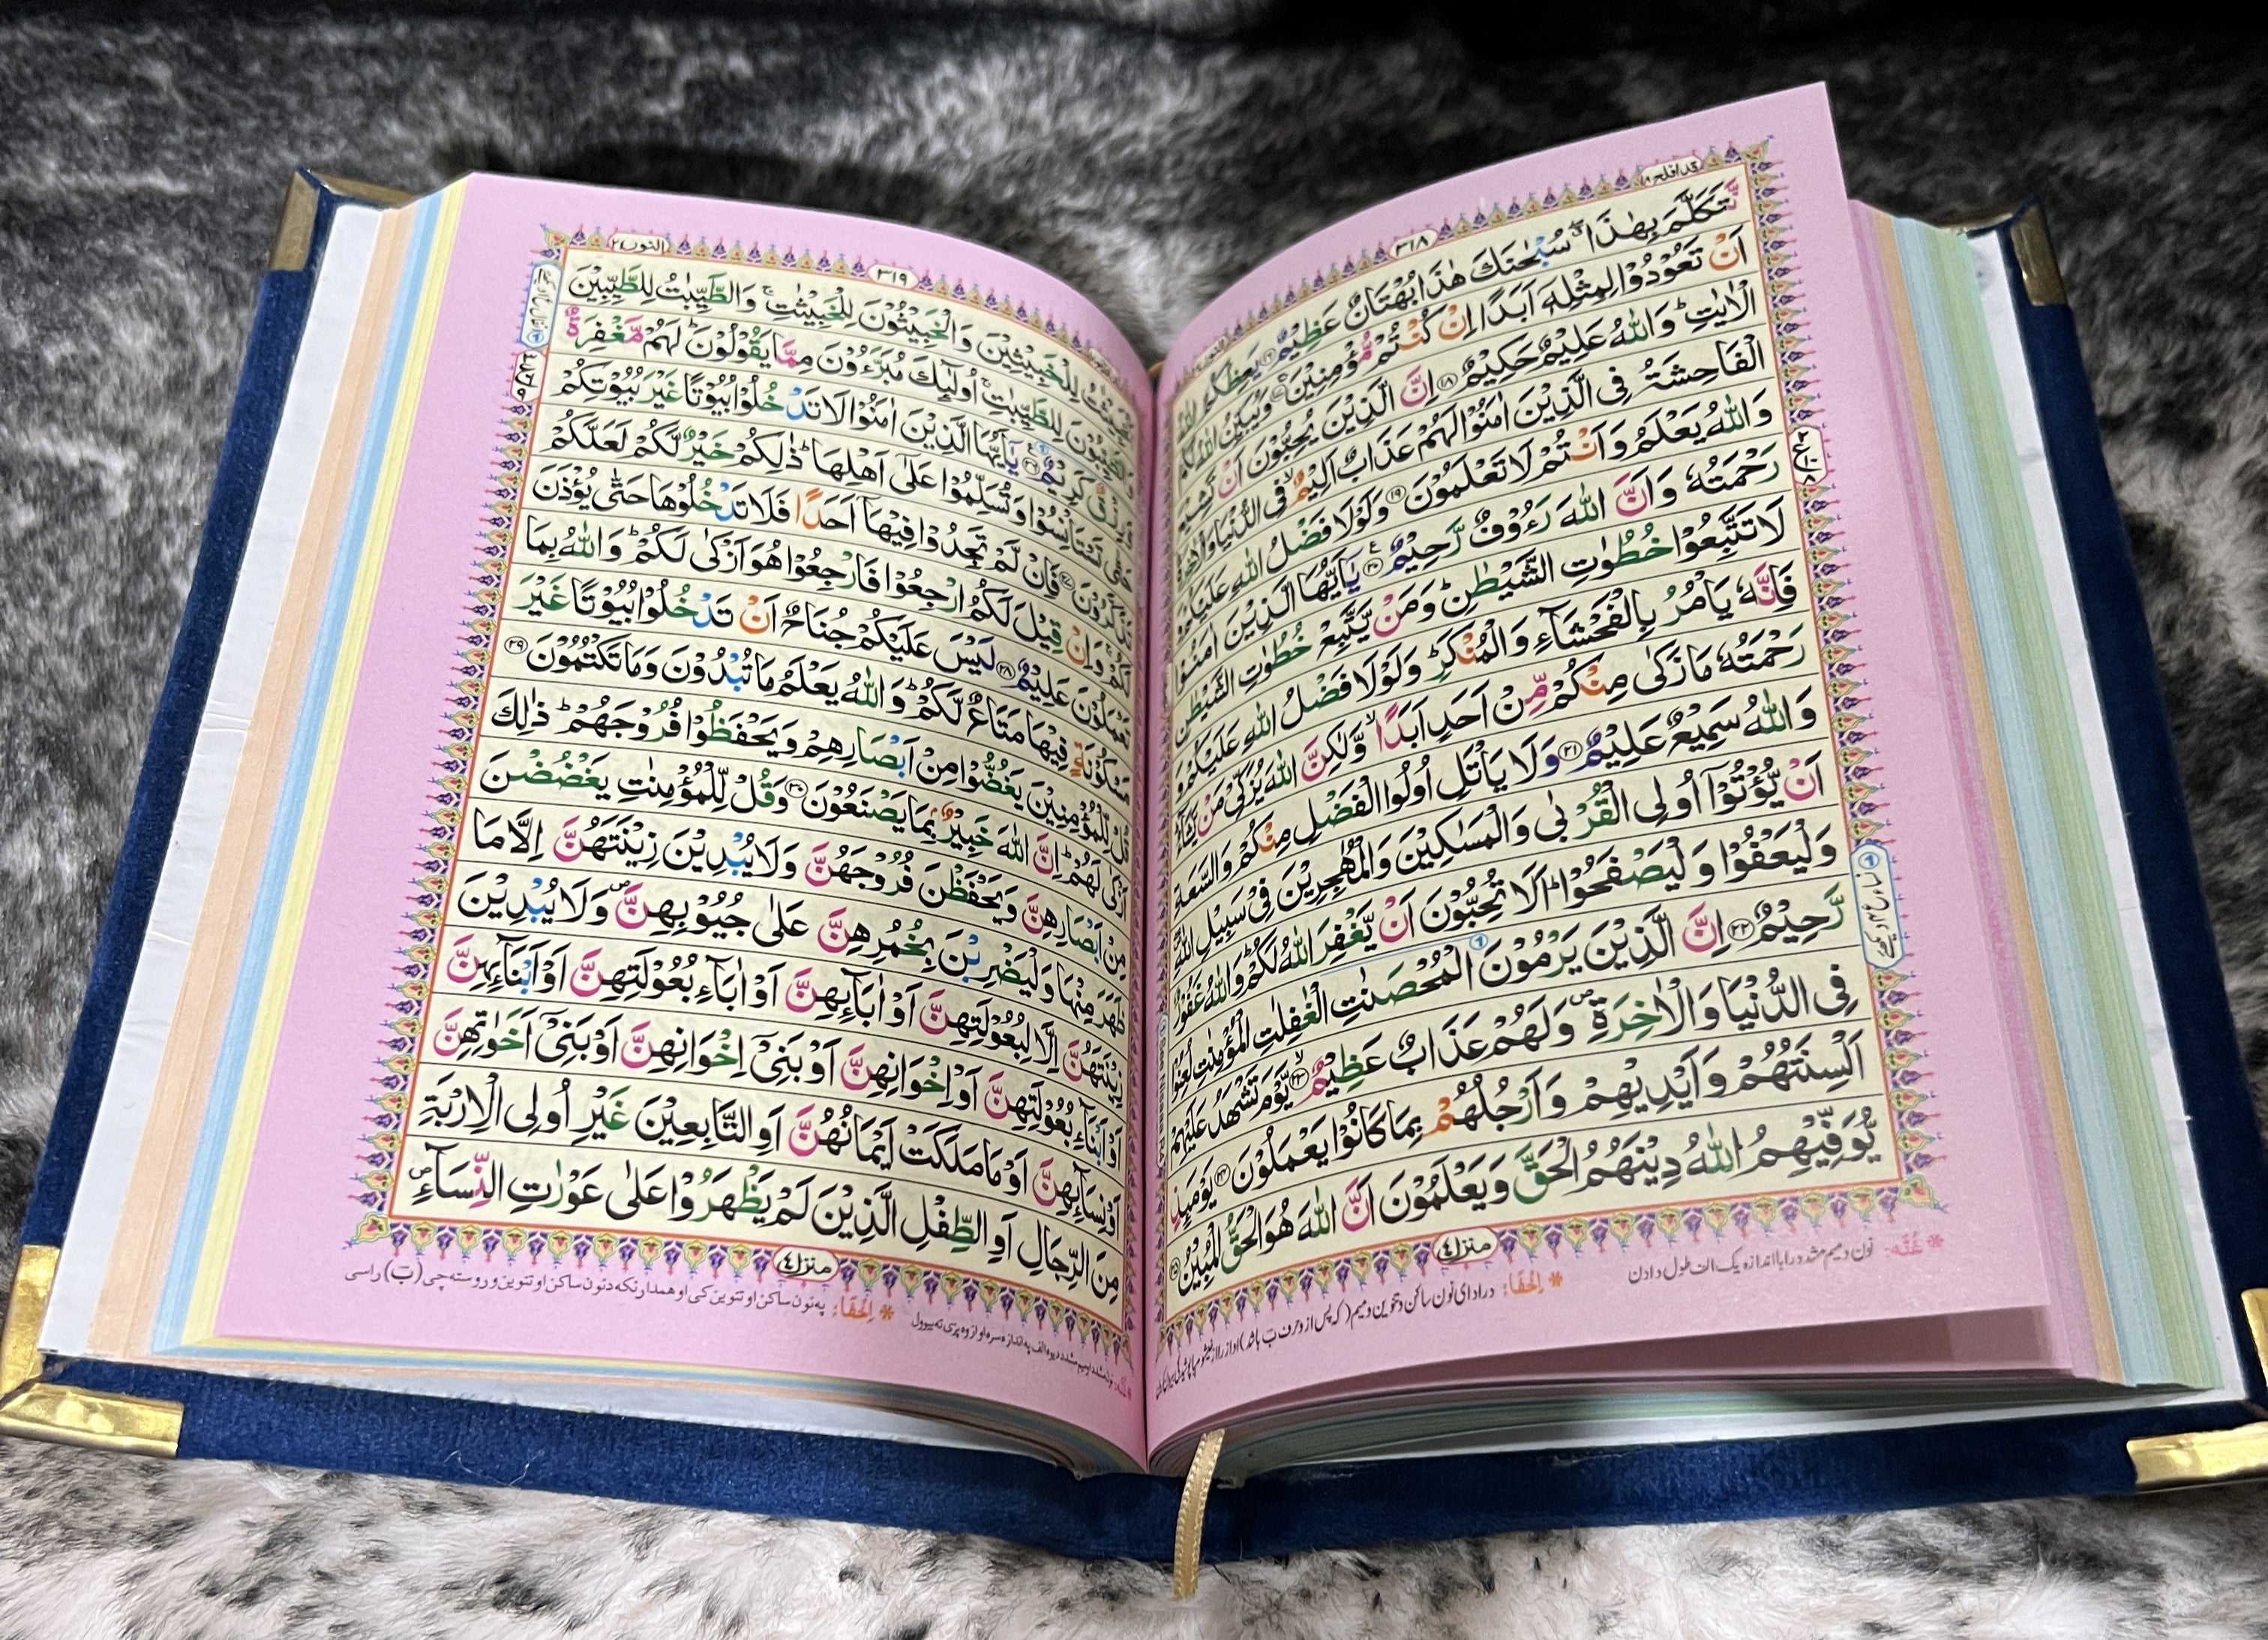 قد افلح ١٨
٣١٨
نَّتَكَلَّمَ بِهٰذَا ۖ سُبْحٰنَكَ هٰذَا بُهْتَانٌ عَظِيْمٌ ⑯ يَعِظُكُمُ اللّٰهُ
اَنْ تَعُوْدُوْا لِمِثْلِهٖٓ اَبَدًا اِنْ كُنْتُمْ مُّؤْمِنِيْنَ ⑰ وَيُبَيِّنُ اللّٰهُ لَكُمُ
الْاٰيٰتِ ؕ وَاللّٰهُ عَلِيْمٌ حَكِيْمٌ ⑱ اِنَّ الَّذِيْنَ يُحِبُّوْنَ اَنْ تَشِيْعَ
الْفَاحِشَةُ فِى الَّذِيْنَ اٰمَنُوْا لَهُمْ عَذَابٌ اَلِيْمٌ ۙ فِى الدُّنْيَا وَالْاٰخِرَةِ
وَاللّٰهُ يَعْلَمُ وَاَنْتُمْ لَا تَعْلَمُوْنَ ⑲ وَلَوْلَا فَضْلُ اللّٰهِ عَلَيْكُمْ وَ
رَحْمَتُهٗ وَاَنَّ اللّٰهَ رَءُوْفٌ رَّحِيْمٌ ⑳ يٰٓاَيُّهَا الَّذِيْنَ اٰمَنُوْا
لَا تَتَّبِعُوْا خُطُوٰتِ الشَّيْطٰنِ ؕ وَمَنْ يَّتَّبِعْ خُطُوٰتِ الشَّيْطٰنِ
فَاِنَّهٗ يَاْمُرُ بِالْفَحْشَآءِ وَالْمُنْكَرِ ؕ وَلَوْلَا فَضْلُ اللّٰهِ عَلَيْكُمْ وَ
رَحْمَتُهٗ مَا زَكٰى مِنْكُمْ مِّنْ اَحَدٍ اَبَدًا ۙ وَّلٰكِنَّ اللّٰهَ يُزَكِّىْ مَنْ يَّشَآءُ
وَاللّٰهُ سَمِيْعٌ عَلِيْمٌ ㉑ وَلَا يَاْتَلِ اُولُوا الْفَضْلِ مِنْكُمْ وَالسَّعَةِ
اَنْ يُّؤْتُوْٓا اُولِى الْقُرْبٰى وَالْمَسٰكِيْنَ وَالْمُهٰجِرِيْنَ فِىْ سَبِيْلِ اللّٰهِ
وَلْيَعْفُوْا وَلْيَصْفَحُوْا ؕ اَلَا تُحِبُّوْنَ اَنْ يَّغْفِرَ اللّٰهُ لَكُمْ ؕ وَاللّٰهُ غَفُوْرٌ
رَّحِيْمٌ ㉒ اِنَّ الَّذِيْنَ يَرْمُوْنَ الْمُحْصَنٰتِ الْغٰفِلٰتِ الْمُؤْمِنٰتِ لُعِنُوْا
فِى الدُّنْيَا وَالْاٰخِرَةِ ۪ وَلَهُمْ عَذَابٌ عَظِيْمٌ ۙ㉓ يَّوْمَ تَشْهَدُ عَلَيْهِمْ
اَلْسِنَتُهُمْ وَاَيْدِيْهِمْ وَاَرْجُلُهُمْ بِمَا كَانُوْا يَعْمَلُوْنَ ㉔ يَوْمَئِذٍ
يُّوَفِّيْهِمُ اللّٰهُ دِيْنَهُمُ الْحَقَّ وَيَعْلَمُوْنَ اَنَّ اللّٰهَ هُوَ الْحَقُّ الْمُبِيْنُ ㉕
منزل ٤
* غُنَّه: نون و میم مشدد را با اندازه یک الف طول دادن
* اِخفَا: در ادای نون ساکن و تنوین و میم (که پس از و حرف ب باشد)
النور ٢٤
٣١٩
اَلْخَبِيْثٰتُ لِلْخَبِيْثِيْنَ وَالْخَبِيْثُوْنَ لِلْخَبِيْثٰتِ ۚ وَالطَّيِّبٰتُ لِلطَّيِّبِيْنَ
وَالطَّيِّبُوْنَ لِلطَّيِّبٰتِ ۚ اُولٰٓئِكَ مُبَرَّءُوْنَ مِمَّا يَقُوْلُوْنَ ؕ لَهُمْ مَّغْفِرَةٌ
وَّرِزْقٌ كَرِيْمٌ ㉖ يٰٓاَيُّهَا الَّذِيْنَ اٰمَنُوْا لَا تَدْخُلُوْا بُيُوْتًا غَيْرَ بُيُوْتِكُمْ
حَتّٰى تَسْتَاْنِسُوْا وَتُسَلِّمُوْا عَلٰٓى اَهْلِهَا ؕ ذٰلِكُمْ خَيْرٌ لَّكُمْ لَعَلَّكُمْ
تَذَكَّرُوْنَ ㉗ فَاِنْ لَّمْ تَجِدُوْا فِيْهَآ اَحَدًا فَلَا تَدْخُلُوْهَا حَتّٰى يُؤْذَنَ
لَكُمْ ۚ وَاِنْ قِيْلَ لَكُمُ ارْجِعُوْا فَارْجِعُوْا هُوَ اَزْكٰى لَكُمْ ؕ وَاللّٰهُ بِمَا
تَعْمَلُوْنَ عَلِيْمٌ ㉘ لَيْسَ عَلَيْكُمْ جُنَاحٌ اَنْ تَدْخُلُوْا بُيُوْتًا غَيْرَ
مَسْكُوْنَةٍ فِيْهَا مَتَاعٌ لَّكُمْ ؕ وَاللّٰهُ يَعْلَمُ مَا تُبْدُوْنَ وَمَا تَكْتُمُوْنَ ㉙
قُلْ لِّلْمُؤْمِنِيْنَ يَغُضُّوْا مِنْ اَبْصَارِهِمْ وَيَحْفَظُوْا فُرُوْجَهُمْ ؕ ذٰلِكَ
اَزْكٰى لَهُمْ ؕ اِنَّ اللّٰهَ خَبِيْرٌۢ بِمَا يَصْنَعُوْنَ ㉚ وَقُلْ لِّلْمُؤْمِنٰتِ يَغْضُضْنَ
مِنْ اَبْصَارِهِنَّ وَيَحْفَظْنَ فُرُوْجَهُنَّ وَلَا يُبْدِيْنَ زِيْنَتَهُنَّ اِلَّا مَا
ظَهَرَ مِنْهَا وَلْيَضْرِبْنَ بِخُمُرِهِنَّ عَلٰى جُيُوْبِهِنَّ ۪ وَلَا يُبْدِيْنَ
زِيْنَتَهُنَّ اِلَّا لِبُعُوْلَتِهِنَّ اَوْ اٰبَآئِهِنَّ اَوْ اٰبَآءِ بُعُوْلَتِهِنَّ اَوْ اَبْنَآئِهِنَّ
اَوْ اَبْنَآءِ بُعُوْلَتِهِنَّ اَوْ اِخْوَانِهِنَّ اَوْ بَنِىْٓ اِخْوَانِهِنَّ اَوْ بَنِىْٓ اَخَوٰتِهِنَّ
اَوْ نِسَآئِهِنَّ اَوْ مَا مَلَكَتْ اَيْمَانُهُنَّ اَوِ التَّابِعِيْنَ غَيْرِ اُولِى الْاِرْبَةِ
مِنَ الرِّجَالِ اَوِ الطِّفْلِ الَّذِيْنَ لَمْ يَظْهَرُوْا عَلٰى عَوْرٰتِ النِّسَآءِ ۪
منزل ٤
* اِخفَا: په نون ساکن او تنوین کی او همدارنکه د نون ساکن او تنوین وروسته چی (ب) راسی